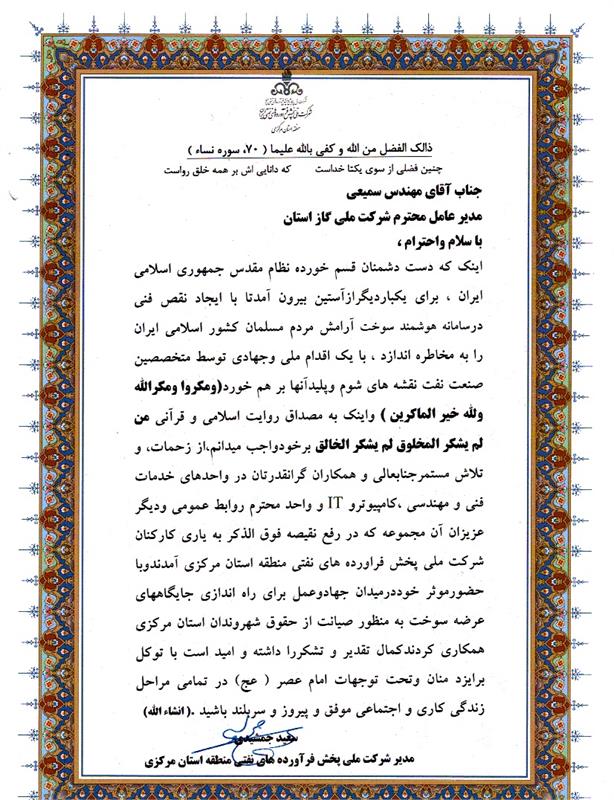 شرکت ملی پخش فرآورده‌های نفتی ایران
منطقه استان مرکزی
ذالک الفضل من الله و کفی بالله علیما ( ۷۰، سوره نساء )
چنین فضلی از سوی یکتا خداست که دانایی اش بر همه خلق رواست
جناب آقای مهندس سمیعی
مدیر عامل محترم شرکت ملی گاز استان
با سلام واحترام ،
اینک که دست دشمنان قسم خورده نظام مقدس جمهوری اسلامی
ایران ، برای یکباردیگرازآستین بیرون آمدتا با ایجاد نقص فنی
درسامانه هوشمند سوخت آرامش مردم مسلمان کشور اسلامی ایران
را به مخاطره اندازد ، با یک اقدام ملی وجهادی توسط متخصصین
صنعت نفت نقشه های شوم وپلیدآنها بر هم خورد(ومکروا ومکرالله
ولله خیر الماکرین ) واینک به مصداق روایت اسلامی و قرآنی من
لم یشکر المخلوق لم یشکر الخالق برخودواجب میدانم،از زحمات، و
تلاش مستمرجنابعالی و همکاران گرانقدرتان در واحدهای خدمات
فنی و مهندسی ،کامپیوترو IT و واحد محترم روابط عمومی ودیگر
عزیزان آن مجموعه که در رفع نقیصه فوق الذکر به یاری کارکنان
شرکت ملی پخش فراورده های نفتی منطقه استان مرکزی آمدندوبا
حضورموثر خوددرمیدان جهادوعمل برای راه اندازی جایگاههای
عرضه سوخت به منظور صیانت از حقوق شهروندان استان مرکزی
همکاری کردندکمال تقدیر و تشکررا داشته و امید است با توکل
برایزد منان وتحت توجهات امام عصر ( عج) در تمامی مراحل
زندگی کاری و اجتماعی موفق و پیروز و سربلند باشید .( انشاء الله)
سعید جمشیدی
مدیر شرکت ملی پخش فرآورده های نفتی منطقه استان مرکزی